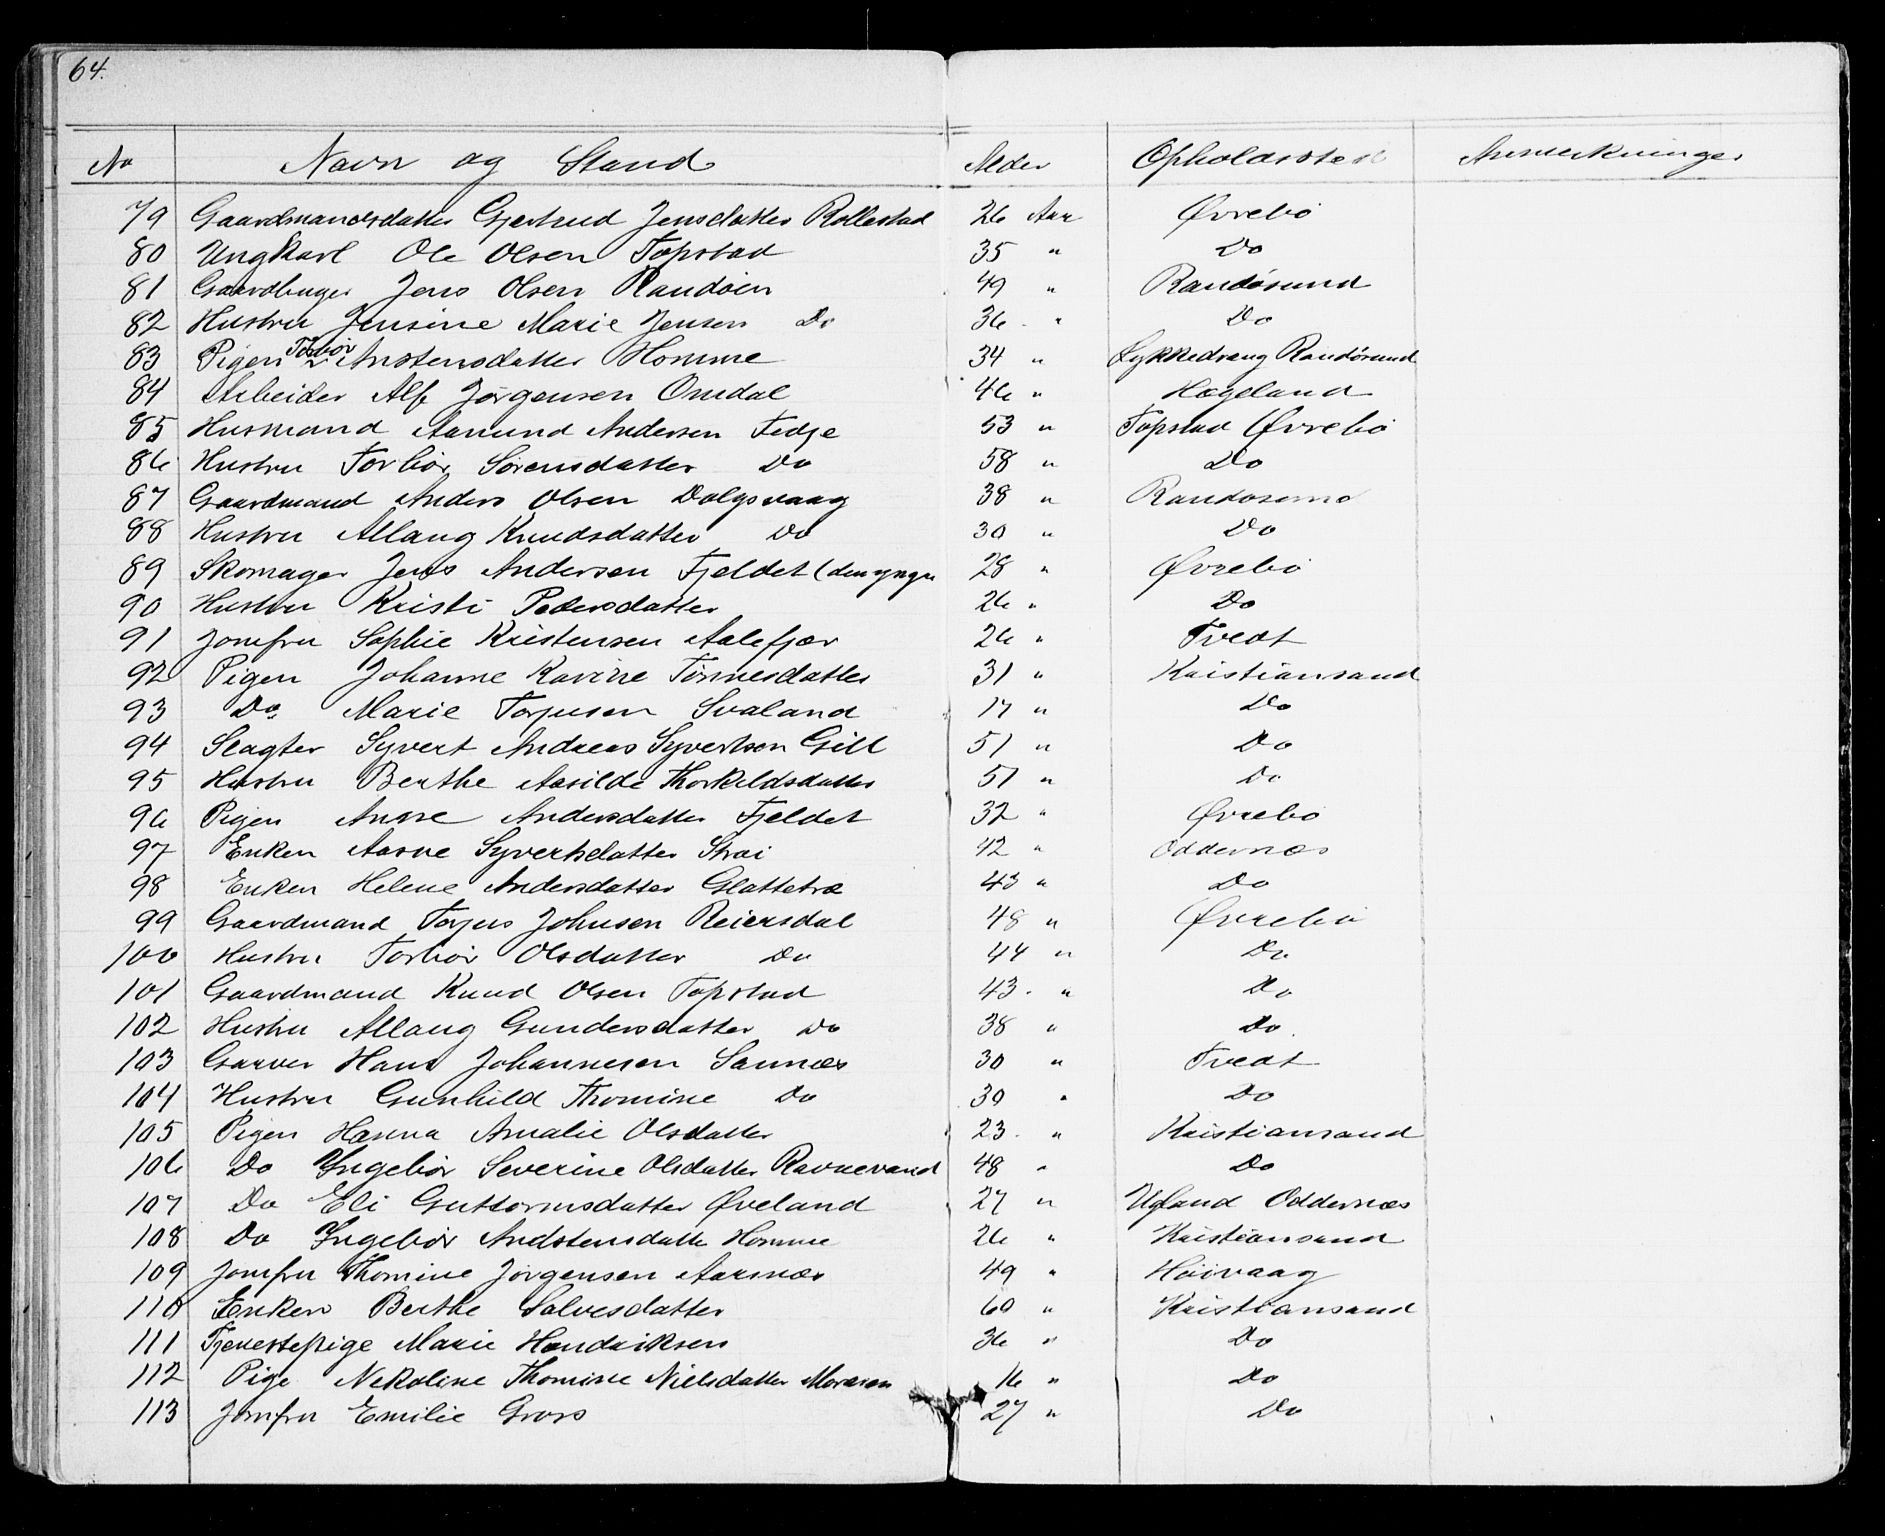 64.
No Navn og Stand Alder Opholdssted Anmerkninger
79 Gaardmandsdatter Gjertrud Jensdatter Rollestad 26 Aar Øvrebö
80 Ungkarl Ole Olsen Topstad 35 " Do
81 Gaardbruger Jens Olsen Randöen 49 " Randösund
82 Hustru Jensine Marie Jensen Do 36 " Do
83 Pigen Torbör Anstensdatter Homme 34 " Lykkedrang Randösund
84 Arbeider Alf Jörgensen Omdal 46 " Hægeland
85 Husmand Aamund Andersen Fedje 53 " Topstad Øvrebö
86 Hustru Torbör Sörensdatter Do 58 " Do
87 Gaardmand Anders Olsen Dolgsvaag 38 " Randösund
88 Hustru Allaug Knudsdatter Do 30 " Do
89 Skomager Jens Andersen Fjeldet (den yngre 28 " Øvrebö
90 Hustru Kristi Pedersdatter 26 " Do
91 Jomfru Sophie Kristensen Aalefjær 26 " Tvedt
92 Pigen Johanne Karine Tönnesdatter 31 " Kristiansand
93 Do Marie Torjusen Svaland 17 " Do
94 Slagter Syvert Andreas Syvertsen Gill 51 " Do
95 Hustru Berthe Aasilde Thorkildsdatter 51 " Do
96 Pigen Anne Andersdatter Fjeldet 32 " Øvrebö
97 Enken Aasne Syvertsdatter Strai 42 " Oddernæs
98 Enken Helene Andersdatter Glattetræ 43 " Do
99 Gaardmand Torjus Johnsen Reiersdal 48 " Øvrebö
100 Hustru Torbör Olsdatter Do 44 " Do
101 Gaardmand Knud Olsen Topstad 43 " Do
102 Hustru Allaug Gundersdatter Do 38 " Do
103 Garver Hans Johannesen Sannæs 30 " Tvedt
104 Hustru Gunhild Thomine Do 30 " Do
105 Pigen Hanna Amalie Olsdatter 23 " Kristiansand
106 Do Ingebör Severine Olsdatter Ravnevand 48 " Do
107 Do Eli Guttormsdatter Øveland 27 " Ugland Oddernæs
108 Do Ingebör Andstensdatte Homme 26 " Kristiansand
109 Jomfru Thomine Jörgensen Aarsnæs 49 " Höivaag
110 Enken Berthe Salvesdatter 60 " Kristiansand
111 Tjenestepige Marie Hendriksen 36 " Do
112 Pige Nekoline Thomine Nielsdatter 16 " Do
113 Jomfru Emilie Gross 27 " Do